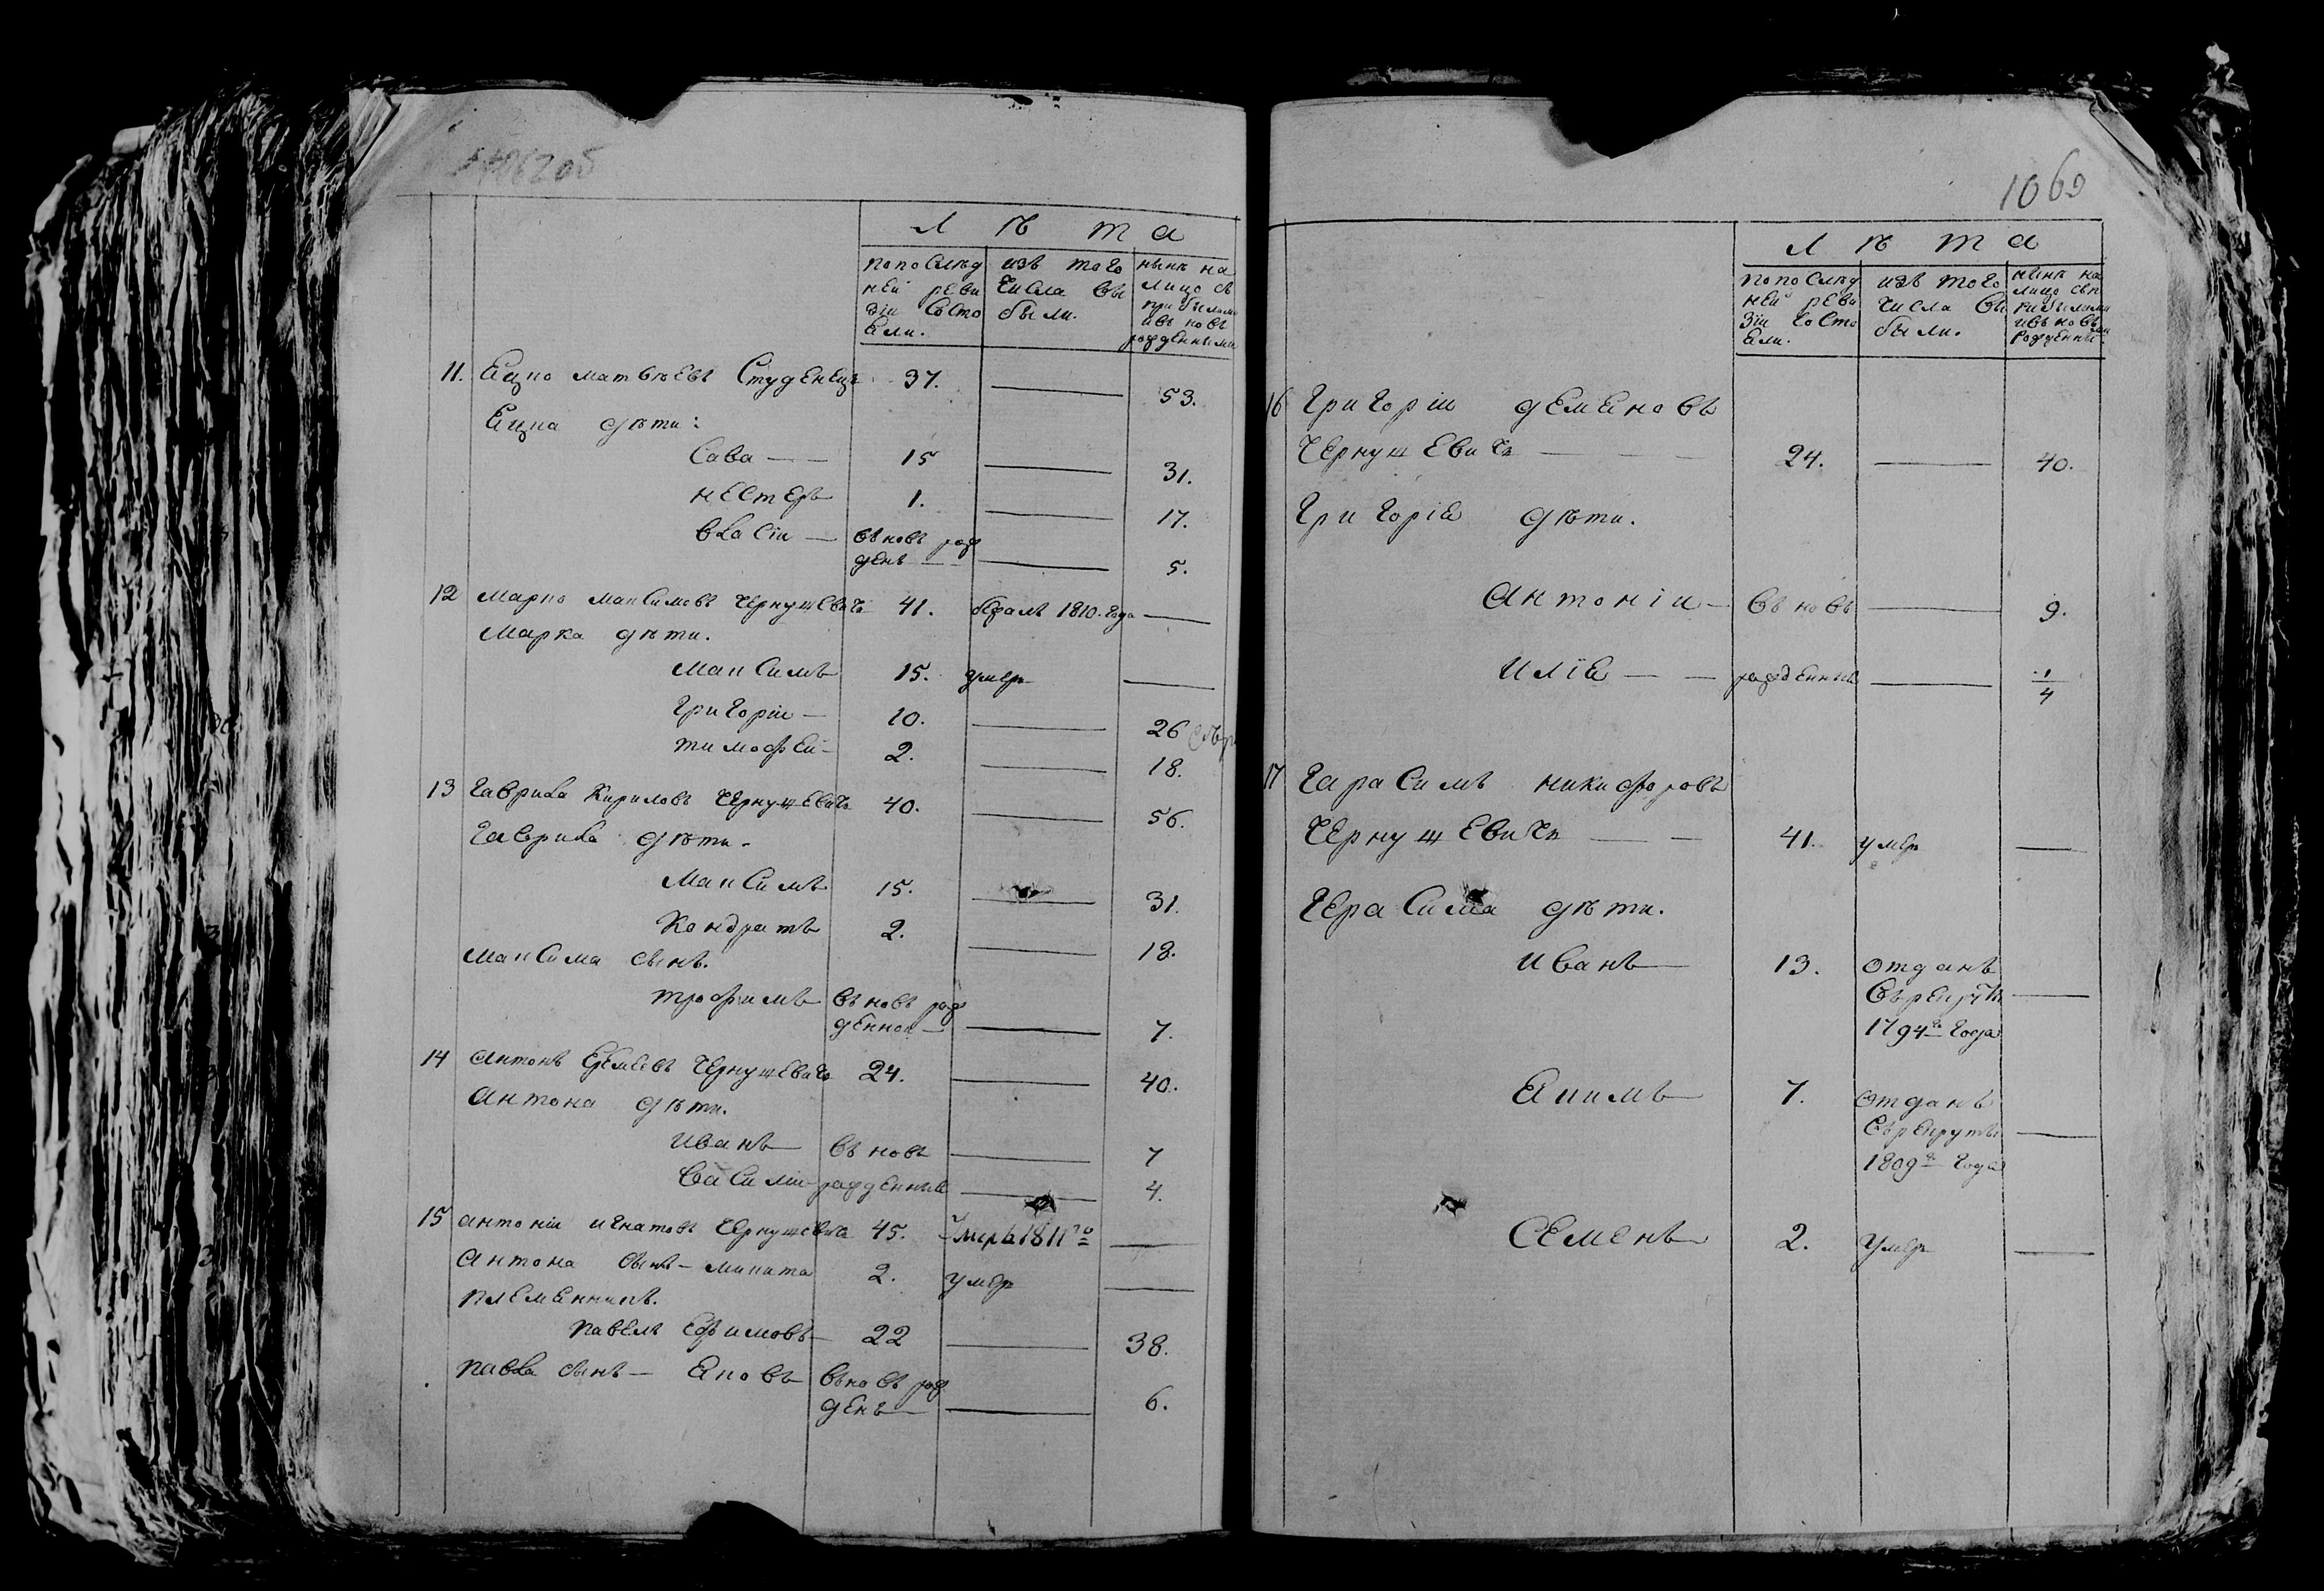 1062об
Лѣта
по послѣд
ней реви
зіи состо
яли.
изъ того
числа вы
были.
нынѣ на
лицо съ
прибылыми
и въ новь
рожденными
11. Яцко матвѣевъ Студенецъ 37. — 53.
Яцка дѣти:
Сава — — 15 — 31.
нестеръ 1. — 17.
власіи — въ новь рож
денъ — — 5.
12 марко максимовъ чернушевичъ 41. бежалъ 1810. года —
марка дѣти.
максимъ 15. умеръ —
григоріи — 10. — 26
тимофей — 2. — 18.
13 гаврила кириловъ чернушевичъ 40. — 56.
гаврила дѣти.
максимъ 15. — 31.
кондратъ 2. — 18.
максима сынъ.
трофимъ въ новь рож
денной — — 7.
14 антонъ чернушевичъ 24. — 40.
антона дѣти.
иванъ въ новь — 7
василіи рожденные — 4.
15 антоніи игнатовъ чернушевичъ 45. умеръ 1811го —
антона сынъ — микита 2. умеръ —
племянникъ.
павелъ ефимовъ — 22 — 38.
павла сынъ — яковъ въ новь рож
денъ — — 6.
1063
Лѣта
по послѣд
ней реви
зіи состо
яли.
изъ того
числа вы
были.
нынѣ на
лицо съ п
рибылыми
и въ новь
рожденными
16 григоріи демяновъ
чернушевичъ — — — 24. — 40.
григорія дѣти.
антоніи — въ новь — 9.
илія — — рожденные — 1/4
17 гарасимъ никифоровъ
чернушевичъ — — 41. умеръ —
герасима дѣти.
иванъ — 13. отданъ
въ рекруты —
1794го года
якимъ — 7. отданъ
въ рекруты —
1809го года
семенъ — 2. умеръ —